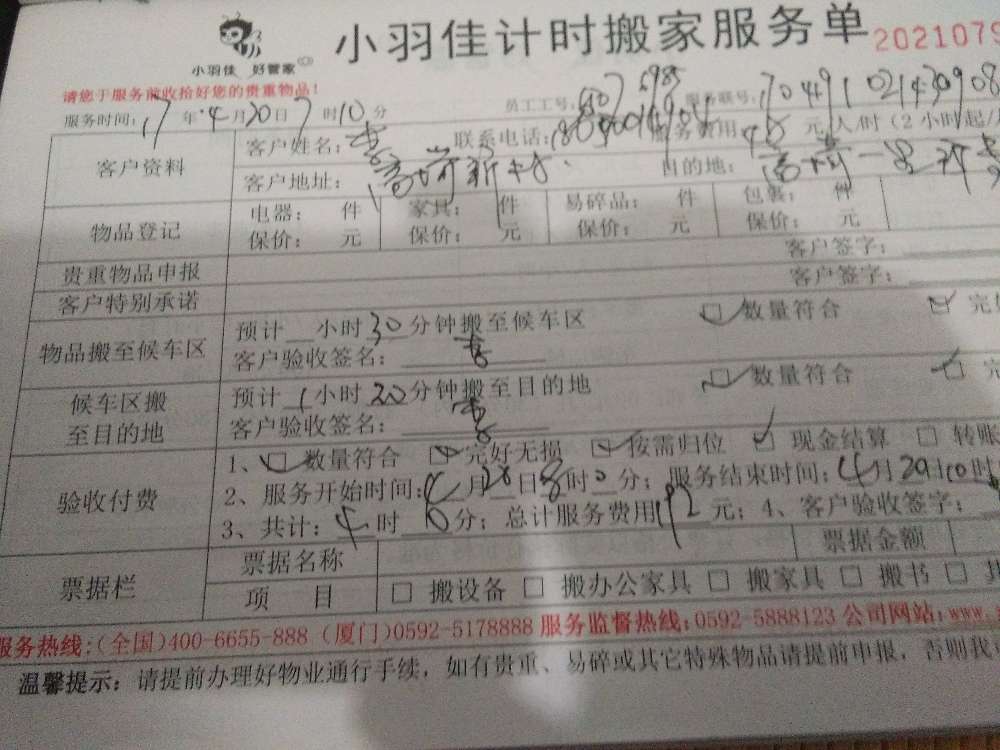 小羽佳计时搬家服务单 2021079
小羽佳 好管家
请您于服务前收拾好您的贵重物品!
服务时间: 17年4月20日7时10分 员工工号: 服务联号:
客户资料 客户姓名: 联系电话: 服务费用: 45 元/人/时(2小时起/
客户地址: 新村. 目的地:
物品登记 电器: 件 家具: 件 易碎品: 件 包裹: 件
保价: 元 保价: 元 保价: 元 保价: 元
贵重物品申报 客户签字:
客户特别承诺 客户签字:
物品搬至候车区 预计 小时30分钟搬至候车区 数量符合
客户验收签名:
候车区搬至目的地 预计1小时20分钟搬至目的地 数量符合
客户验收签名:
验收付费 1、 数量符合 完好无损 按需归位 现金结算 转账
2、服务开始时间:4月20日8时0分; 服务结束时间:4月20日10时
3、共计: 4时 分; 总计服务费用192元; 4、客户验收签字:
票据栏 票据名称 票据金额
项目 搬设备 搬办公家具 搬家具 搬书
服务热线:(全国)400-6655-888 (厦门)0592-5178888 服务监督热线:0592-5888123 公司网站:www.
温馨提示: 请提前办理好物业通行手续, 如有贵重、易碎或其它特殊物品请提前申报, 否则我